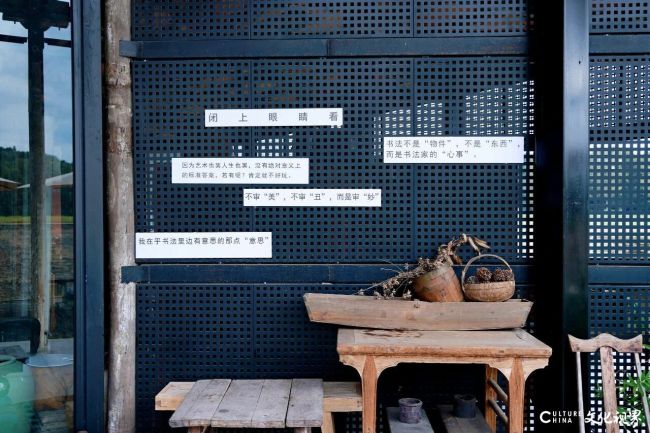 闭上眼睛看
书法不是“物件”，不是“东西”，
而是书法家的“心事”。
因为艺术也笑人生也罢，没有绝对意义上
的标准答案，若有呢？肯定就不好玩。
不审“美”，不审“丑”，而是审“妙”
我在乎书法里边有意思的那点“意思”
CULTURE
CHINA
文化视界